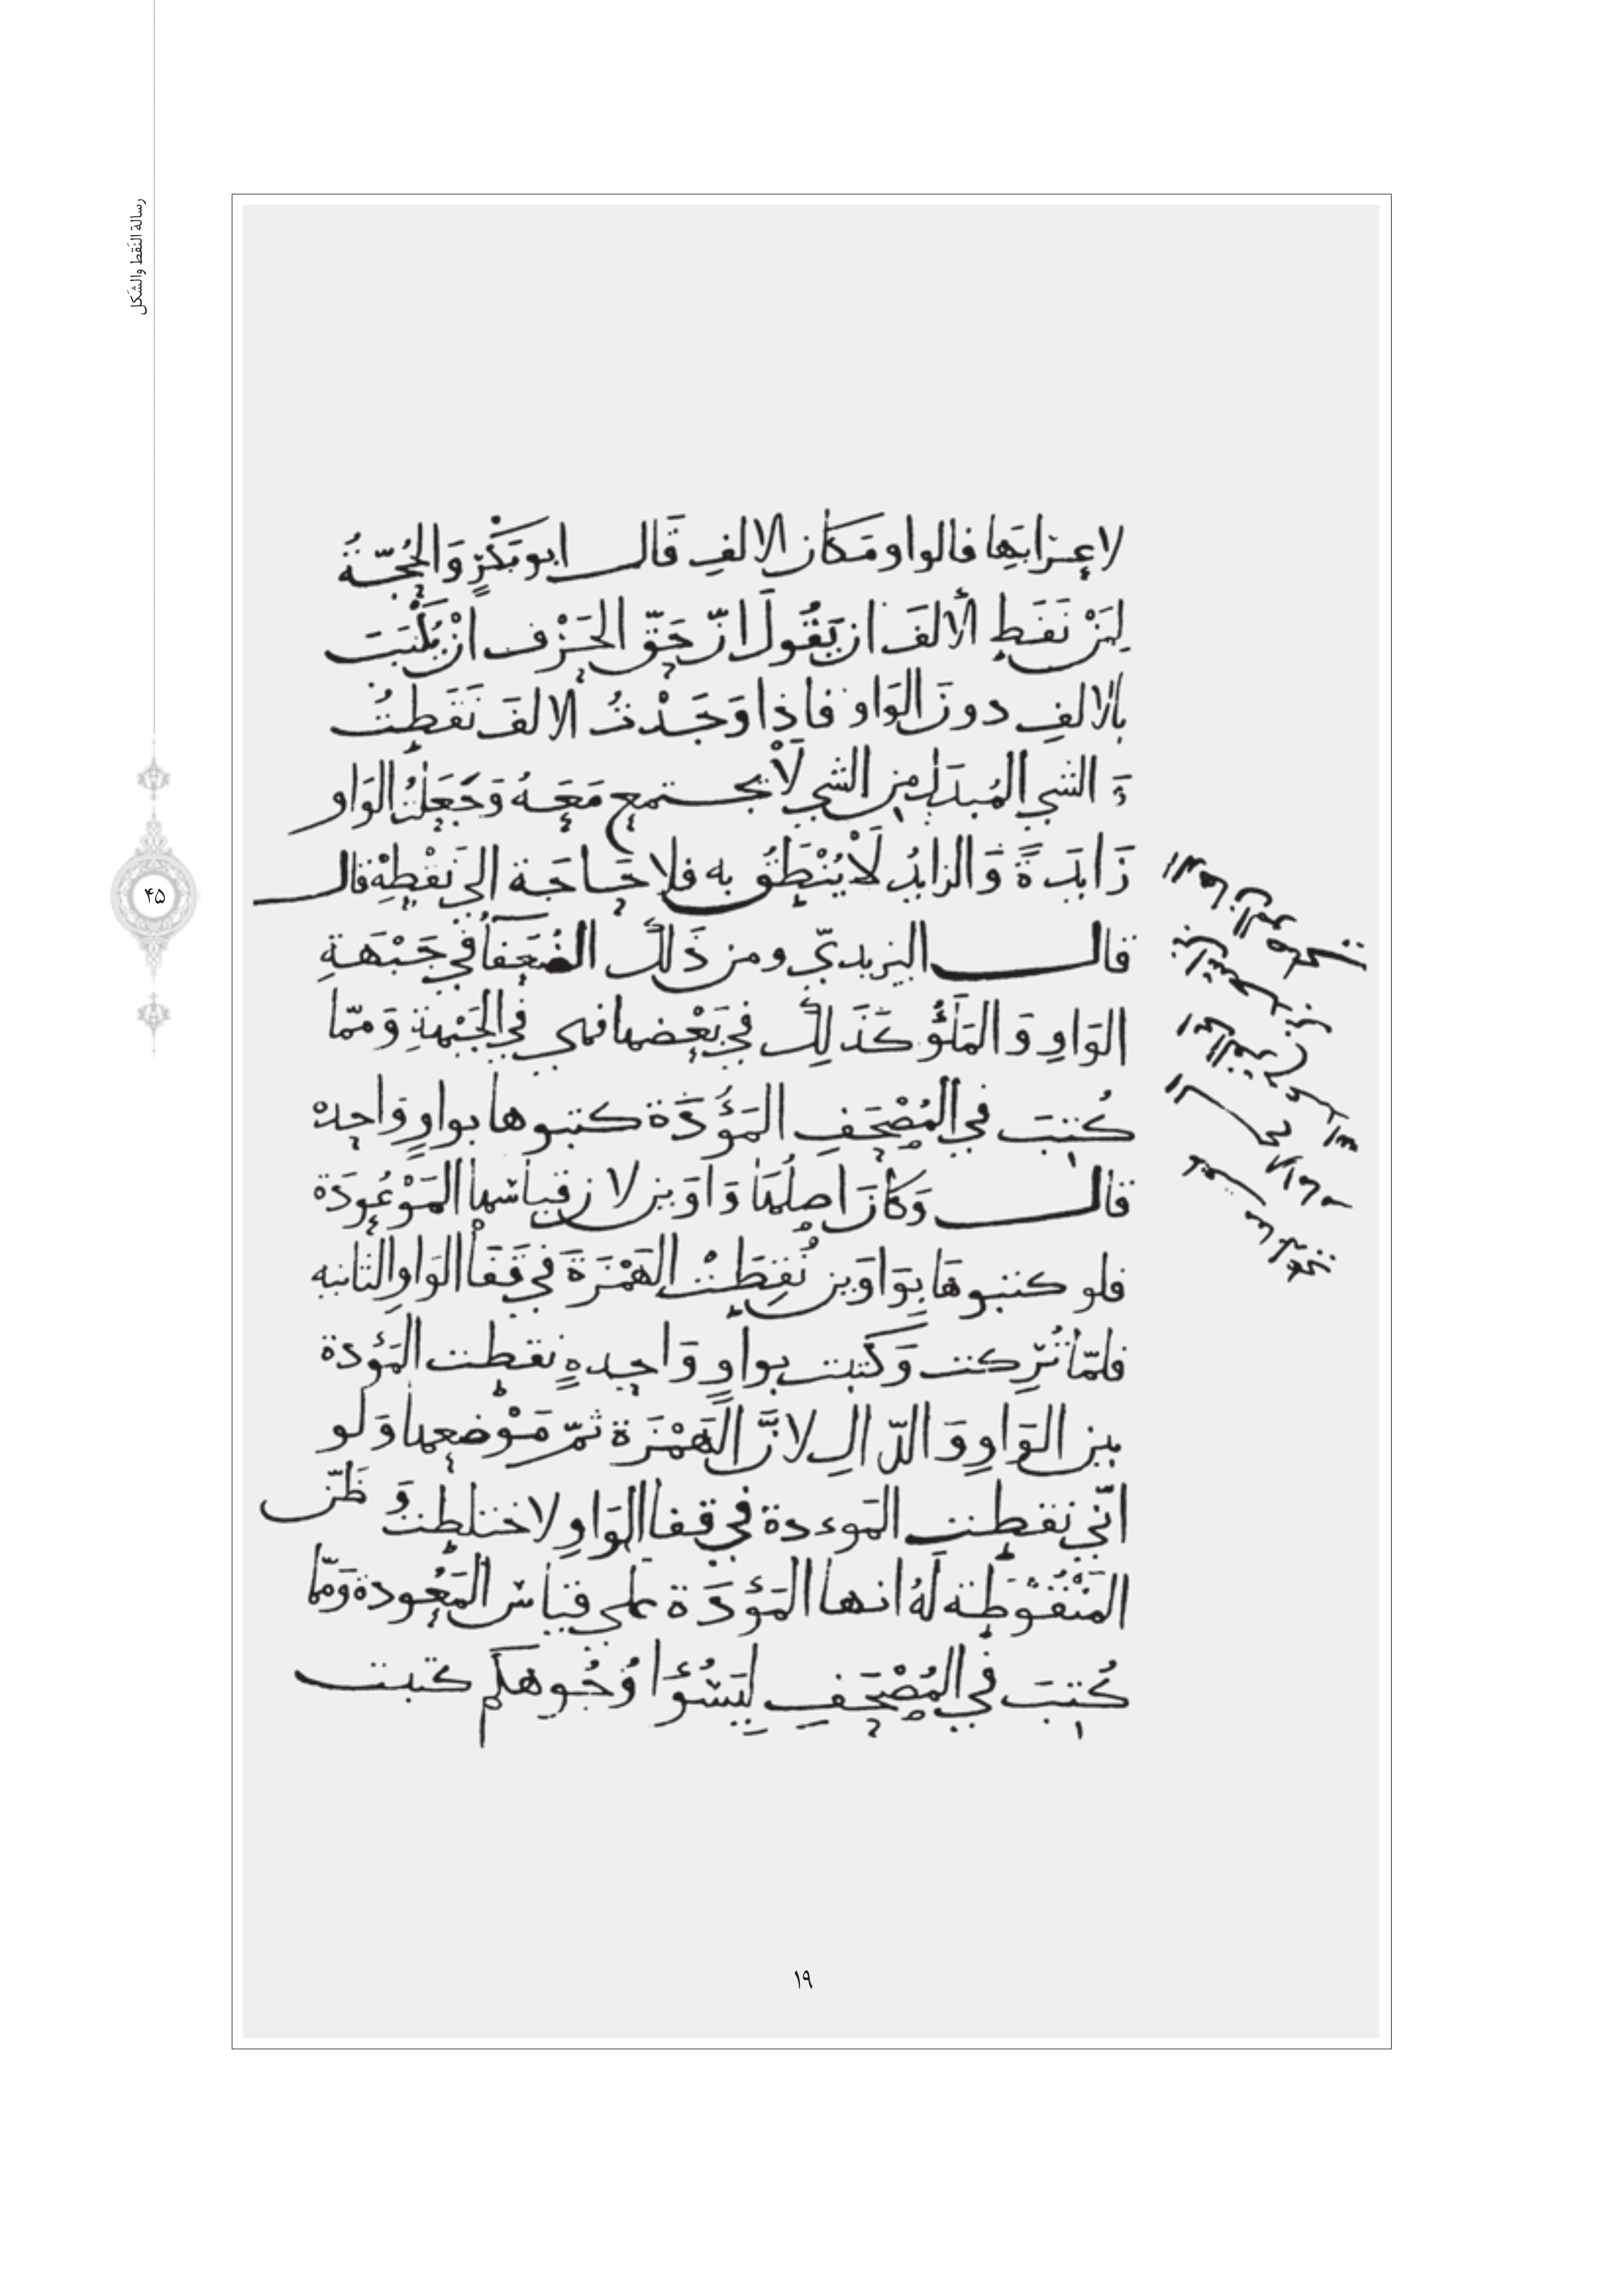 رسالة النقط والشكل
۴۵
لاعرابها فالواو مكان الالف قال ابو بكر والحجة
لمن نقط الالف ان يقول ان حق الحرف ان يكتب
بالالف دون الواو فاذا وجدت الالف نقطت
الشي المبدل من الشي لا يجتمع معه وجعلت الواو
زايدة والزايد لا ينطق به فلا حاجة الى نقطه قال
قال اليزيدي ومن ذلك الضعفا في جبهة
الواو والملؤ كذلك في بعضها فهي في الجبهة ومما
كتبت في المصحف المؤدة كتبوها بواو واحده
قال وكان اصلها واوين لان قياسها الموعودة
فلو كتبوها بواوين نقطت الهمزة في قفا الواو الثانيه
فلما تركت وكتبت بواو واحده نقطت المؤدة
بين الواو والدال لان الهمزة ثم موضعها ولو
اني نقطت الموءدة في قفا الواو لاختلطت وظن
المنقوطة له انها المؤدة على قياس المعودة ومما
كتبت في المصحف ليسؤا وجوهكم كتبت
١٩